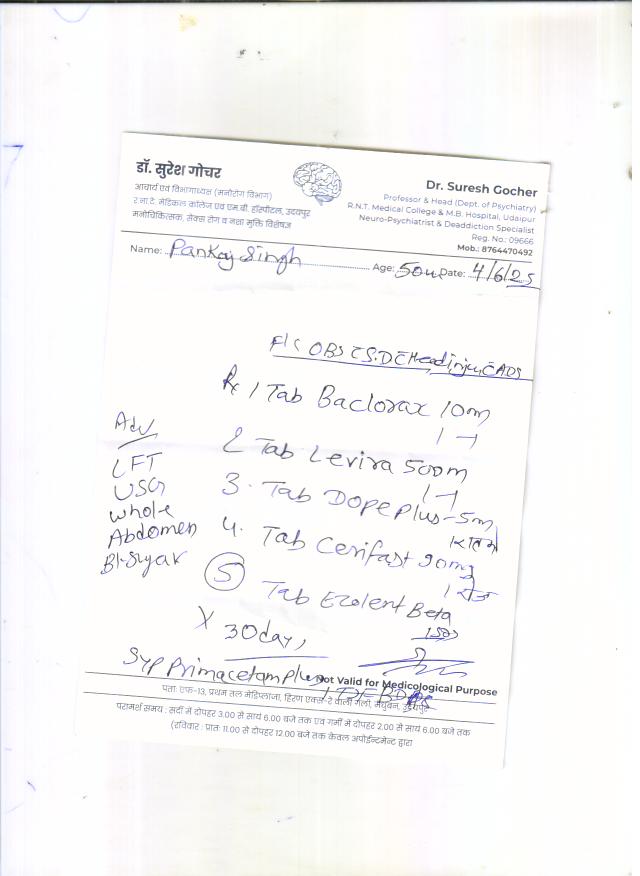 डॉ. सुरेश गोचर
आचार्य एवं विभागाध्यक्ष (मनोरोग विभाग)
र.ना.टे. मेडिकल कॉलेज एवं एम.बी. हॉस्पीटल, उदयपुर
मनोचिकित्सक, सेक्स रोग व नशा मुक्ति विशेषज्ञ
Dr. Suresh Gocher
Professor & Head (Dept. of Psychiatry)
R.N.T. Medical College & M.B. Hospital, Udaipur
Neuro-Psychiatrist & Deaddiction Specialist
Reg. No.: 09666
Mob.: 8764470492
Name: Pankaj Singh Age: 50 Date: 4/6/25
OBS Head injury ADS
Rx 1 Tab Baclorax 10m
1-1
2 Tab Levira 500m
1-1
3. Tab Dope Plus-5m
4. Tab Cerifast 90mg
1 रोज
5 Tab Ezolent Beta
X 30 day,
Adv
LFT
USG
whole
Abdomen
Bl-Sugar
Syp Primacetam Plus
Not Valid for Medicological Purpose
पता: एफ-13, प्रथम तल मेडिप्लाजा, हिरण एक्स-रे वाली गली, मधुबन, उदयपुर
परामर्श समय : सर्दी में दोपहर 3.00 से सायं 6.00 बजे तक एवं गर्मी में दोपहर 2.00 से सायं 6.00 बजे तक
(रविवार : प्रातः 11.00 से दोपहर 12.00 बजे तक केवल अपॉइन्टमेन्ट द्वारा